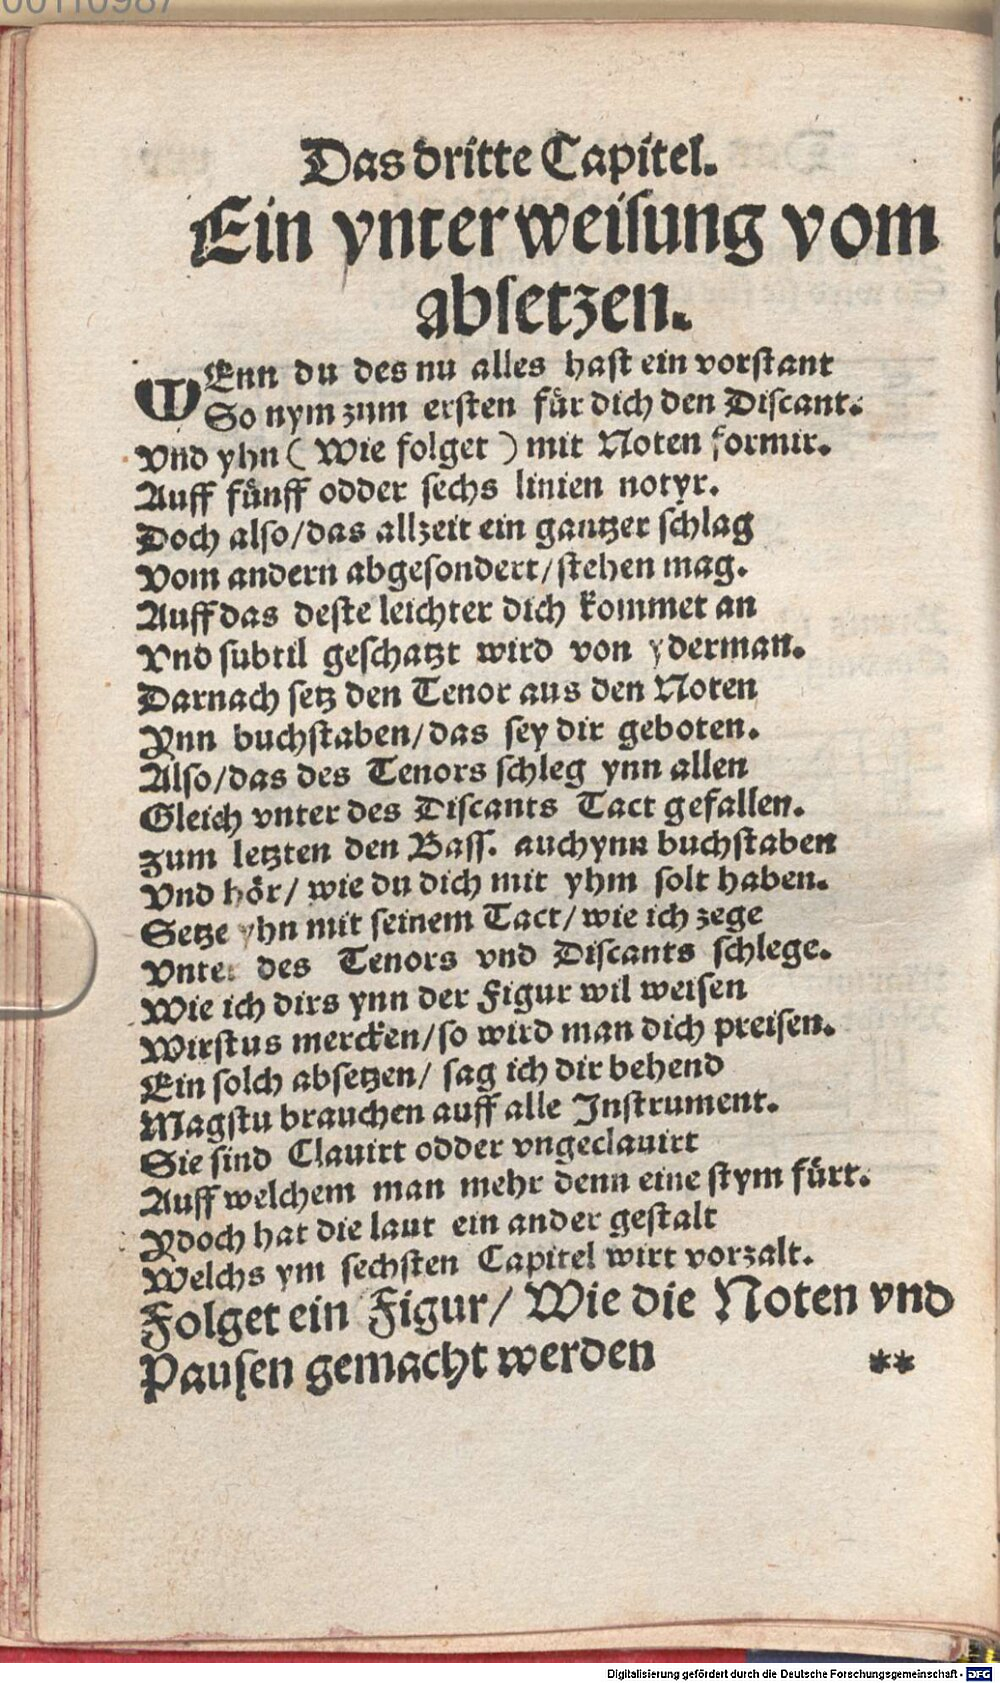 00110987
Das dritte Capitel.
Ein vnterweisung vom
absetzen.
WEnn du des nu alles hast ein vorstant
So nym zum ersten für dich den Discant.
Vnd yhn ( Wie folget ) mit Noten formir.
Auff fünff odder sechs linien notyr.
Doch also/das allzeit ein gantzer schlag
Vom andern abgesondert/stehen mag.
Auff das deste leichter dich kommet an
Vnd subtil geschatzt wird von yderman.
Darnach setz den Tenor aus den Noten
Ynn buchstaben/das sey dir geboten.
Also/das des Tenors schleg ynn allen
Gleich vnter des Discants Tact gefallen.
Zum letzten den Bass. auch ynn buchstaben
Vnd hör/ wie du dich mit yhm solt haben.
Setze yhn mit seinem Tact/wie ich zege
Vnter des Tenors vnd Discants schlege.
Wie ich dirs ynn der Figur wil weisen
Wirstus mercken/so wird man dich preisen.
Ein solch absetzen/ sag ich dir behend
Magstu brauchen auff alle Instrument.
Sie sind Clauirt odder vngeclauirt
Auff welchem man mehr denn eine stym fürt.
Ydoch hat die laut ein ander gestalt
Welchs ym sechsten Capitel wirt vorzalt.
Folget ein Figur/ Wie die Noten vnd
Pausen gemacht werden **
Digitalisierung gefördert durch die Deutsche Forschungsgemeinschaft - DFG